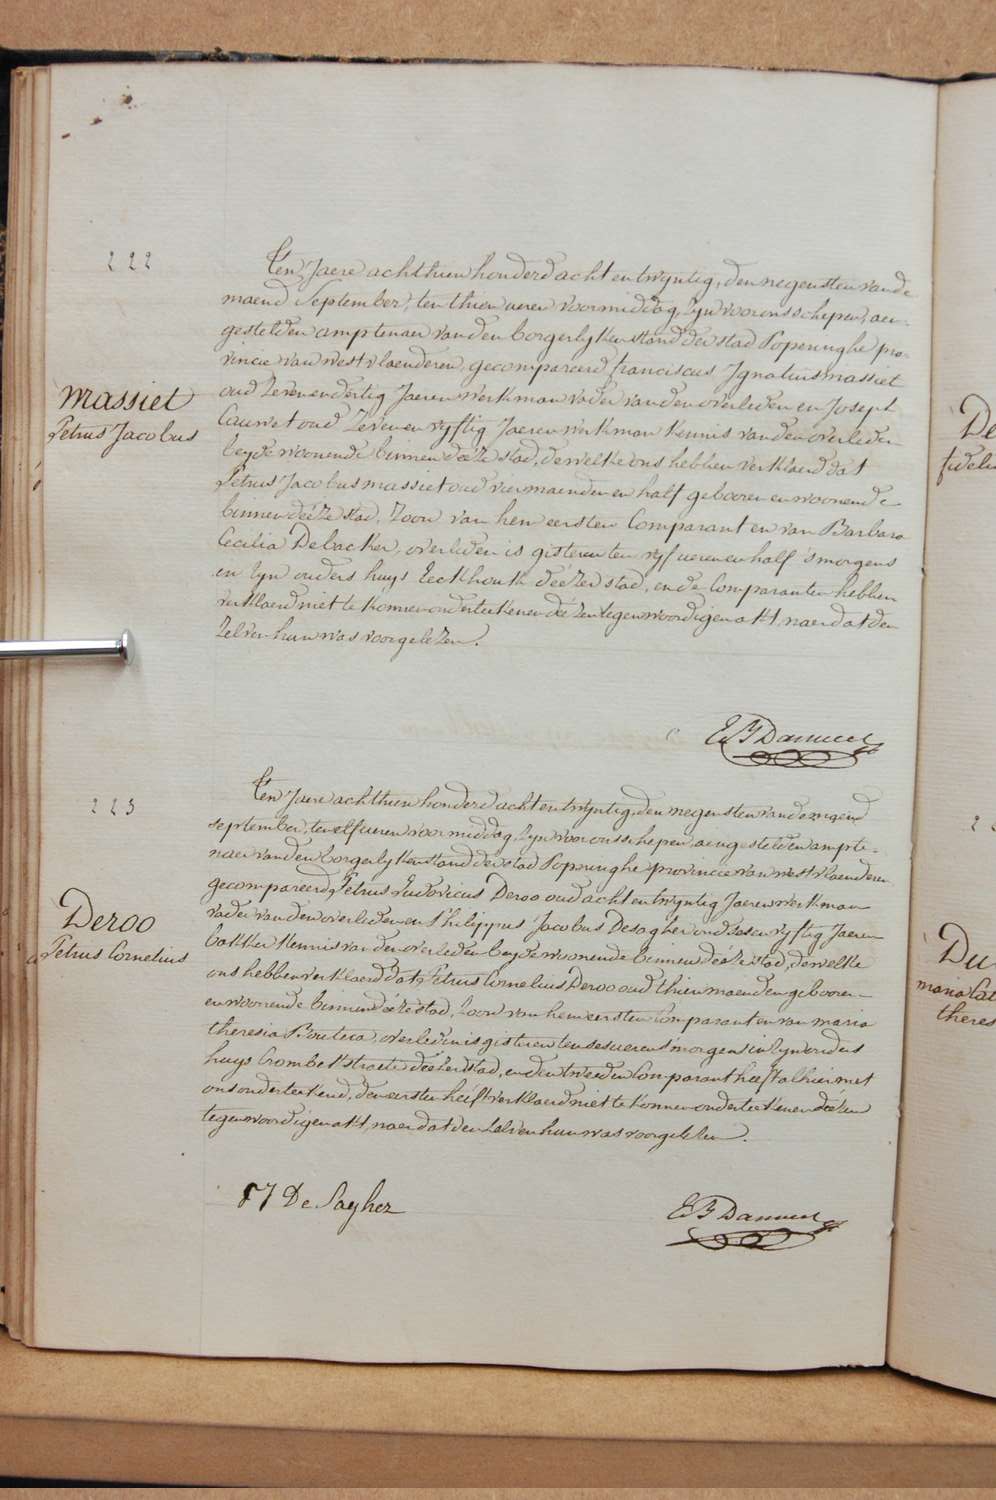 222
Massiet
Petrus Jacobus
Ten Jaere achthien honderd acht en twyntig, den negensten van de
maend September, ten thien ueren voormiddag, Zyn voor ons schepen, aen-
gestelden amptenaer van den borgerlyken stand der stad Poperinghe pro-
vincie van westvlaenderen, gecompareerd franciscus Ignatius massiet
oud Zeven en dertig Jaeren werkman vader van den overleden en Joseph
Cauwet oud Zeven en vyftig Jaeren werkman Kennis van den overleden
beyde woonende binnen deéze stad, de welke ons hebben verklaerd dat
Petrus Jacobus massiet oud vier maenden en half gebooren en woonende
binnen deéze stad, Zoon van hem eersten Comparant en van Barbara
Cecilia Debacker, overleden is gisteren ten vyf ueren en half 's morgens
in Zyn ouders huys Eeckhoutk deézer stad, en de Comparanten hebben
verklaerd niet te konnen onderteekenen deézen tegenwoordigen akt, naer dat den
Zelven hun was voorgelezen.
223
Deroo
Petrus Cornelius
Ten Jaere achthien honderd acht en twyntig, den negensten van de maend
september, ten elf ueren voormiddag, Zyn voor ons schepen, aengestelden ampte-
naer van den borgerlyken stand der stad Poperinghe provincie van westvlaenderen
gecompareerd Petrus Ludovicus Deroo oud acht en twyntig Jaeren werkman
vader van den overleden en Philippus Jacobus Desagher oud sesen vyftig Jaeren
bakker Kennis van den overleden beyde woonende binnen deéze stad, de welke
ons hebben verklaerd dat Petrus Cornelius Deroo oud thien maenden gebooren
en woonende binnen deéze stad, Zoon van hem eersten Comparant en van maria
theresia Boutera, overleden is gisteren ten ses ueren s morgens in Zyn ouders
huys Crombekstraete deézer stad, en den tweeden Comparant heéft alhier met
ons onderteekend, den eersten heéft verklaerd niet te konnen onderteekenen deézen
tegenwoordigen akt, naer dat den Zelven hun was voorgelezen.
PJ De Sagher
De
Du
theres